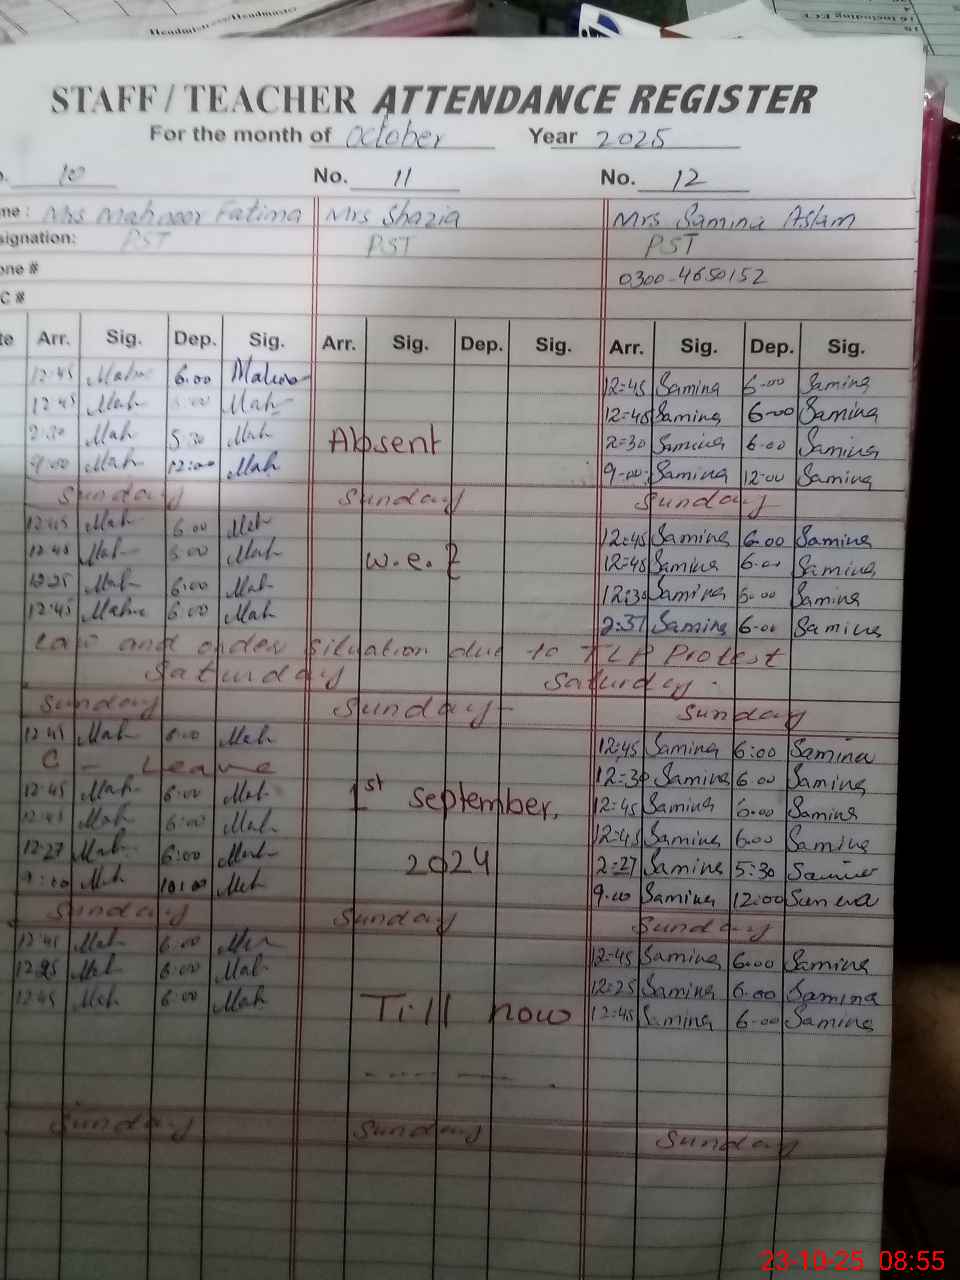 Headmistress/Headmaster
STAFF / TEACHER ATTENDANCE REGISTER
For the month of October Year 2025
10 No. 11 No. 12
me : Mrs Mahnoor Fatima Mrs Shazia Mrs Samina Aslam
signation: PST PST PST
one # 0300-4650152
C #
te Arr. Sig. Dep. Sig. Arr. Sig. Dep. Sig. Arr. Sig. Dep. Sig.
12:45 6.00 12=45 Samina 6-00 Samina
12:45 Mah Mah 12=45 Samina 6-00 Samina
2:30 Mah 5:30 Mah Absent 2=30 Samina 6-00 Samina
9:00 Mah 12:00 Mah 9-00 Samina 12-00 Samina
Sunday Sunday Sunday
12:45 Mah 6:00 Mah 12:45 Samina 6.00 Samina
12:45 Mah Mah w.e.f 12=45 Samina 6.00 Samina
Mah 6:00 Mah 12:30 Samina Samina
12:45 6:00 Mah 2:37 Samina 6-00 Samina
Law and order situation due to TLP Protest
Saturday Saturday.
Sunday Sunday Sunday
12:45 Mah Mah 12:45 Samina 6:00 Samina
C - Leave 12=30 Samina 6.00 Samina
12:45 Mah 6:00 Mah 1st September, 12=45 Samina 6.00 Samina
12:45 Mah 6:00 Mah 12=45 Samina 6.00 Samina
12:27 Mah 6:00 Mah 2024 2=27 Samina 5:30
9:00 Mah Mah 9.00 Samina 12:00
Sunday Sunday Sunday
12:45 Mah 6:00 12=45 Samina 6.00 Samina
Mah 6:00 Mah 12=25 Samina 6.00 Samina
12:45 Mah 6:00 Mah Till now 12=45 Samina 6-00 Samina
Sunday Sunday Sunday
23-10-25 08:55